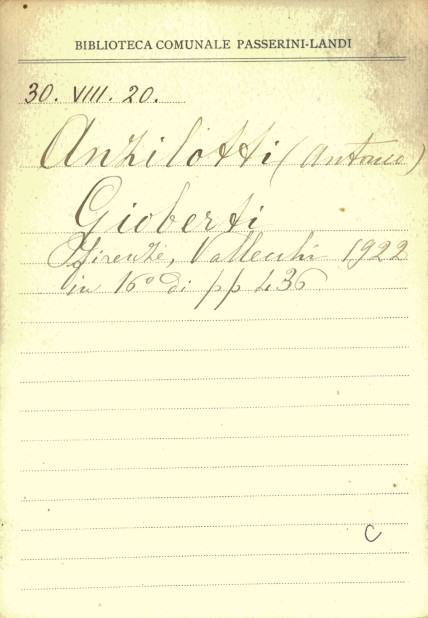 BIBLIOTECA COMUNALE PASSERINI-LANDI
30. VIII. 20.
Anzilotti (Antonio)
Gioberti
Firenze, Vallecchi 1922
in 16° di pp 436
C